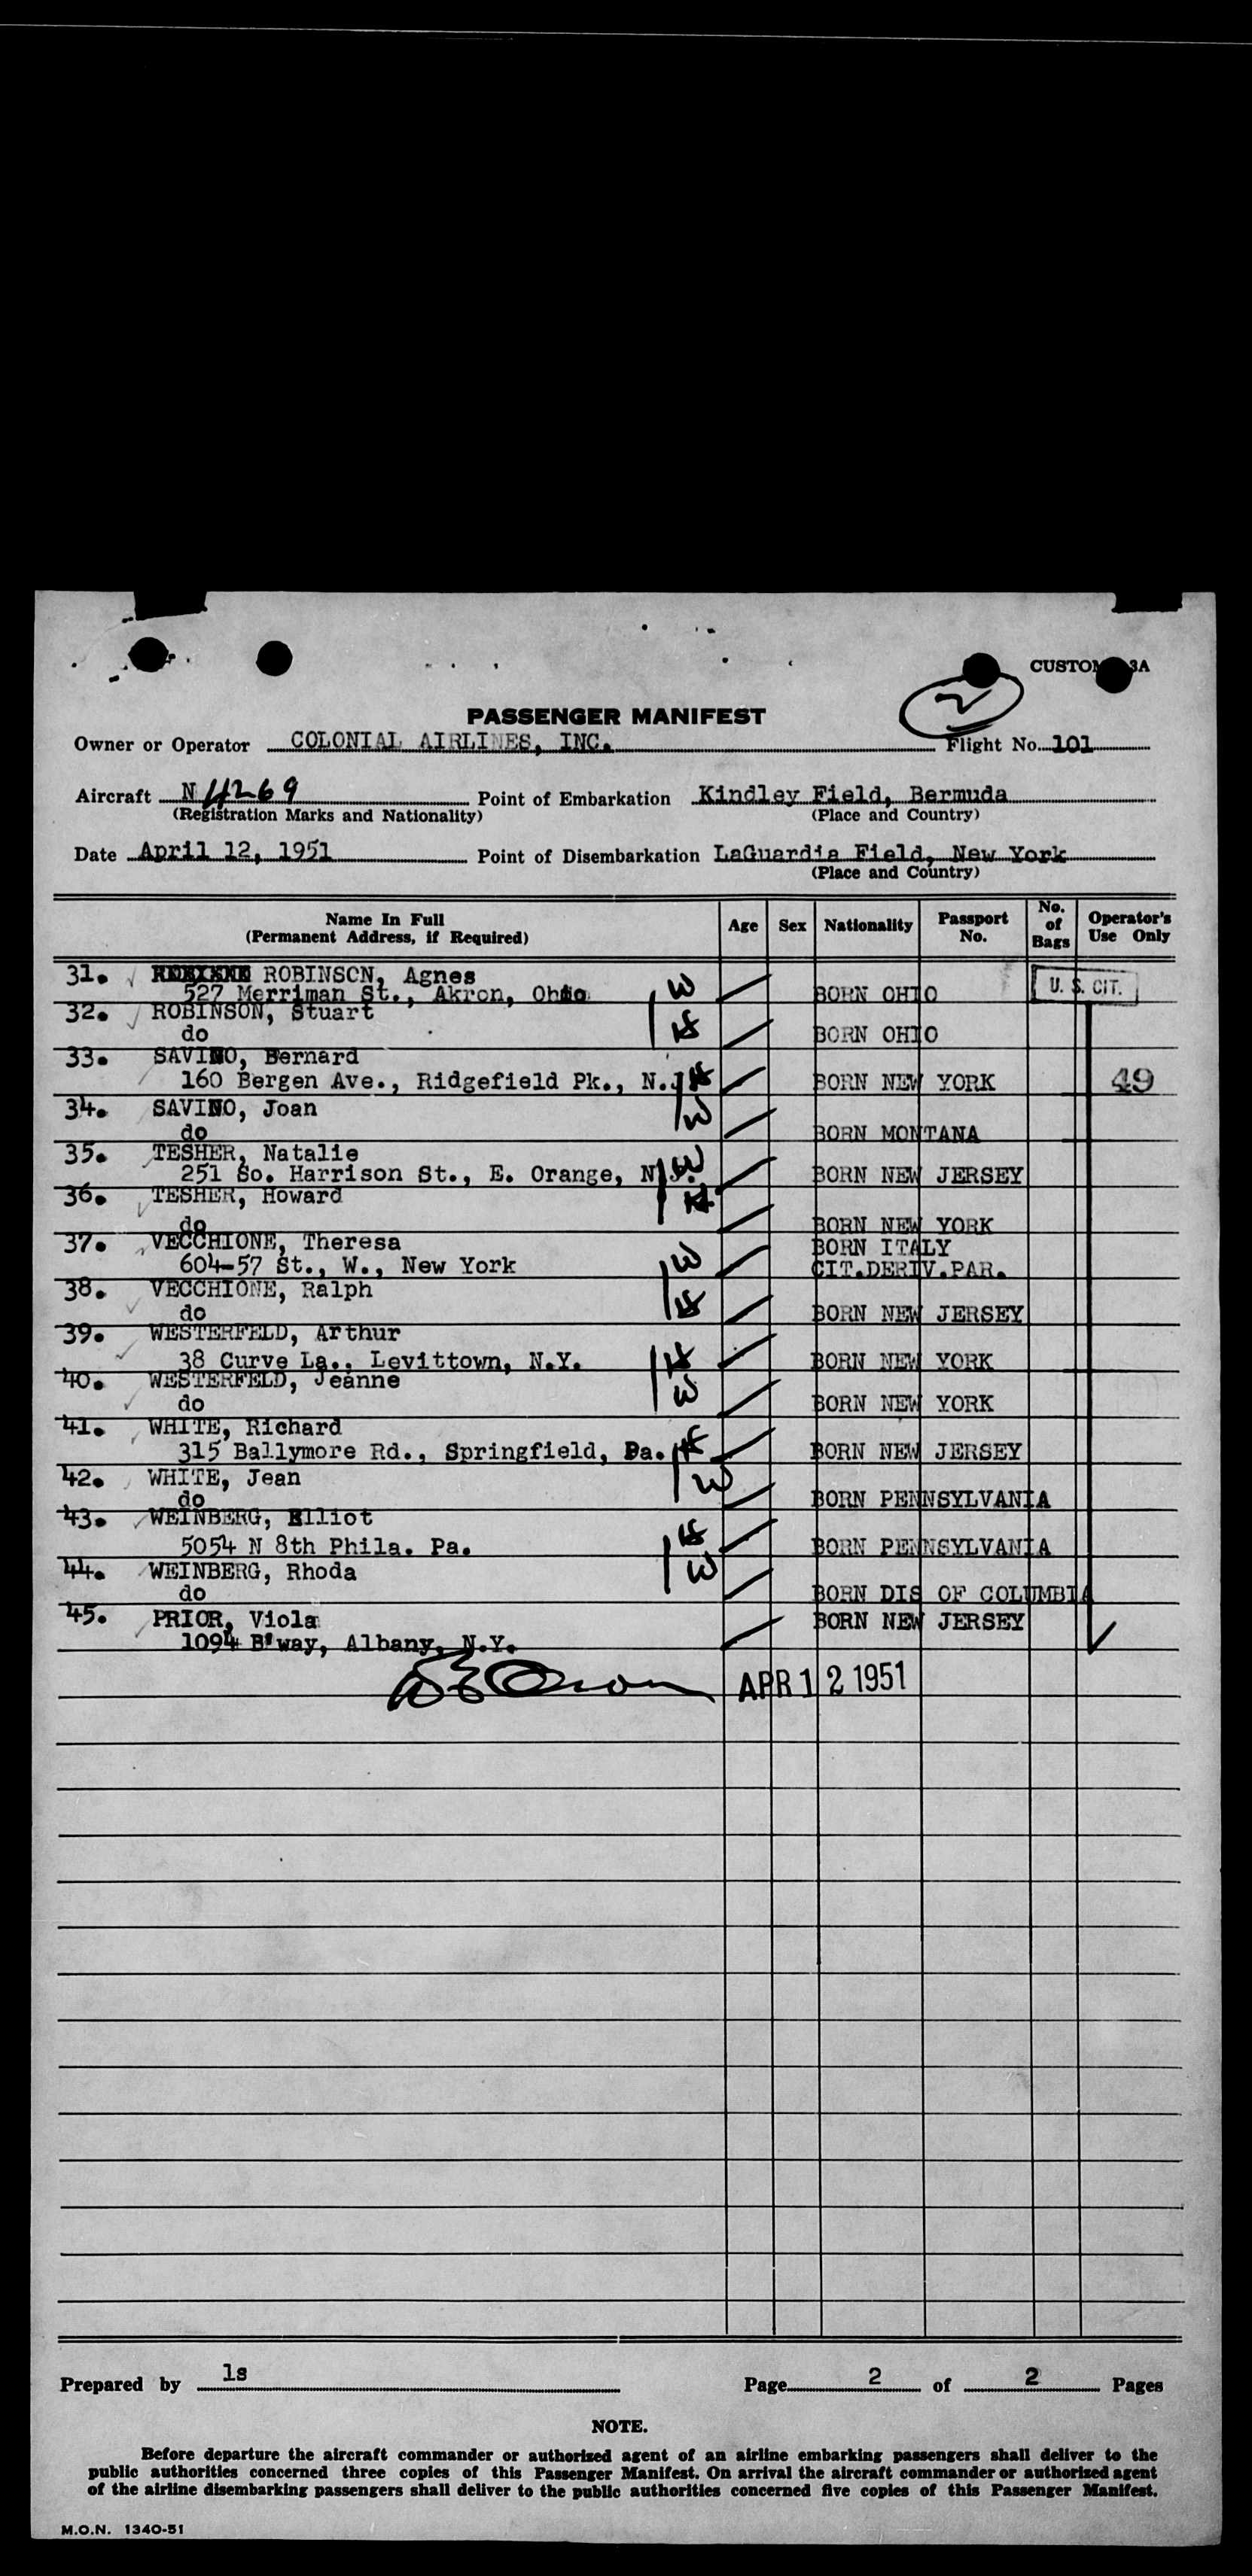 CUSTO 3A
2
PASSENGER MANIFEST
Owner or Operator COLONIAL AIRLINES, INC. Flight No. 101
Aircraft N 4269 Point of Embarkation Kindley Field, Bermuda
(Registration Marks and Nationality) (Place and Country)
Date April 12, 1951 Point of Disembarkation LaGuardia Field, New York
(Place and Country)
Name In Full (Permanent Address, if Required) Age Sex Nationality Passport No. No. of Bags Operator's Use Only
31. ROBINSON, Agnes
527 Merriman St., Akron, Ohio W BORN OHIO U. S. CIT.
32. ROBINSON, Stuart
do H BORN OHIO
33. SAVINO, Bernard
160 Bergen Ave., Ridgefield Pk., N.J. H BORN NEW YORK 49
34. SAVINO, Joan W
do BORN MONTANA
35. TESHER, Natalie
251 So. Harrison St., E. Orange, N.J. W BORN NEW JERSEY
36. TESHER, Howard H
do BORN NEW YORK
37. VECCHIONE, Theresa BORN ITALY
604-57 St., W., New York W CIT.DERIV.PAR.
38. VECCHIONE, Ralph
do H BORN NEW JERSEY
39. WESTERFELD, Arthur
38 Curve La., Levittown, N.Y. H BORN NEW YORK
40. WESTERFELD, Jeanne W
do BORN NEW YORK
41. WHITE, Richard
315 Ballymore Rd., Springfield, Pa. H BORN NEW JERSEY
42. WHITE, Jean W
do BORN PENNSYLVANIA
43. WEINBERG, Elliot
5054 N 8th Phila. Pa. H BORN PENNSYLVANIA
44. WEINBERG, Rhoda W
do BORN DIS OF COLUMBIA
45. PRIOR, Viola BORN NEW JERSEY
1094 B'way, Albany, N.Y.
APR 12 1951
Prepared by ls Page 2 of 2 Pages
NOTE.
Before departure the aircraft commander or authorized agent of an airline embarking passengers shall deliver to the
public authorities concerned three copies of this Passenger Manifest. On arrival the aircraft commander or authorized agent
of the airline disembarking passengers shall deliver to the public authorities concerned five copies of this Passenger Manifest.
M.O.N. 1340-51